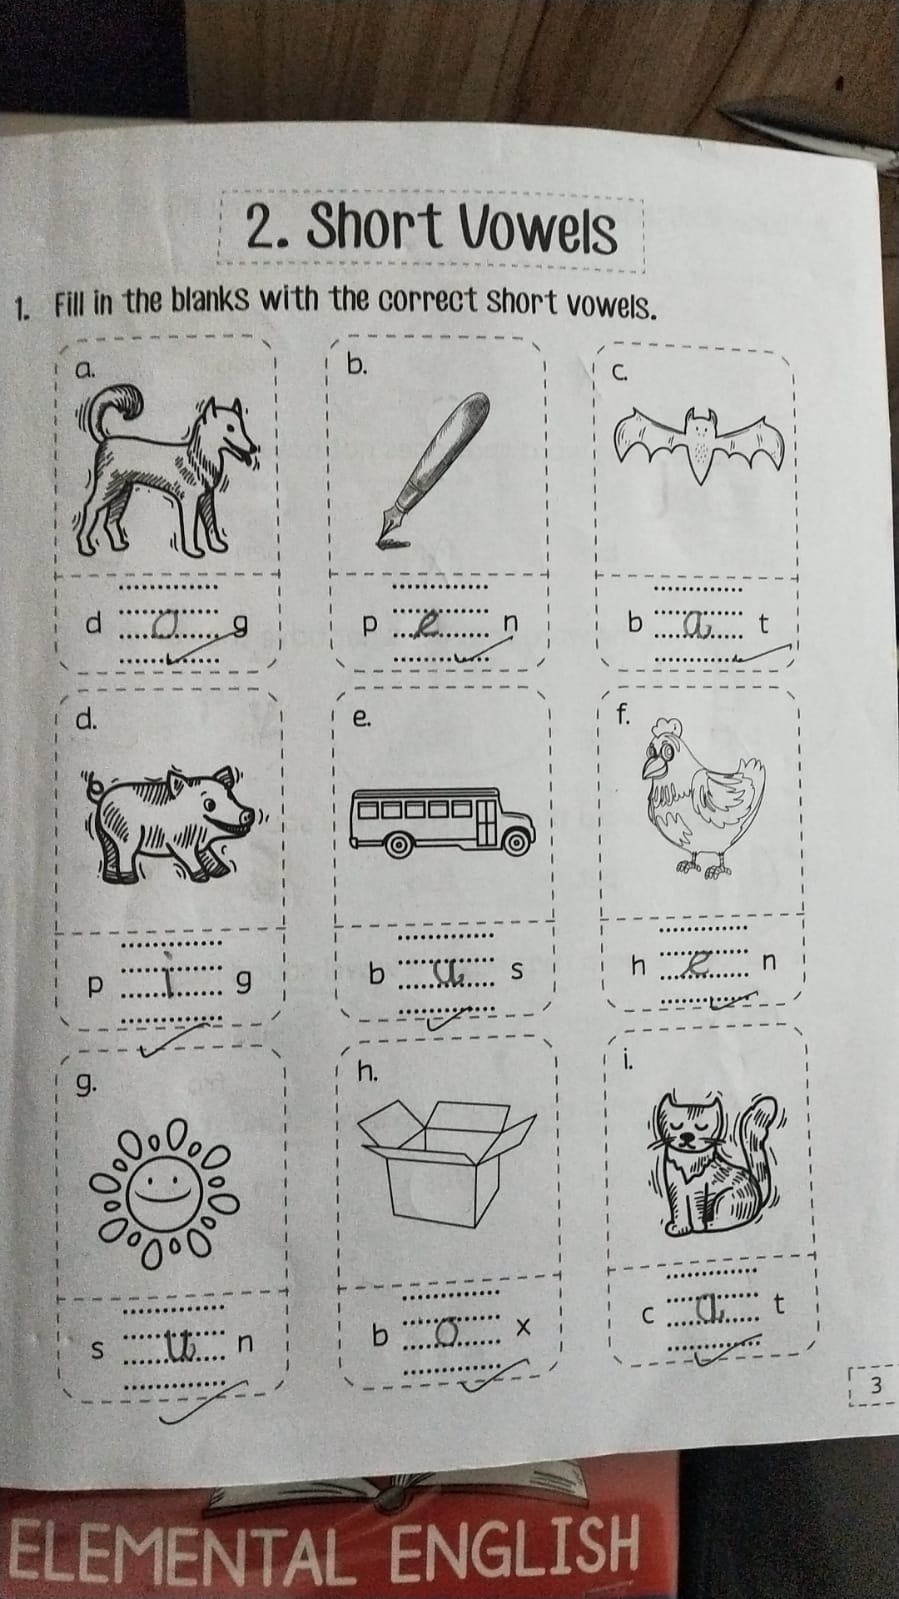 2. Short Vowels
1. Fill in the blanks with the correct short vowels.
a.
b.
c.
d o g
p e n
b a t
d.
e.
f.
p i g
b u s
h e n
g.
h.
i.
s u n
b o x
c a t
3
ELEMENTAL ENGLISH